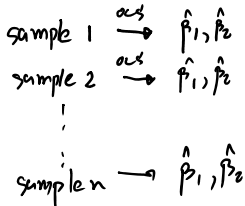 sample 1 OLS → β̂₁, β̂₂
sample 2 OLS → β̂₁, β̂₂
⋮
sample n → β̂₁, β̂₂